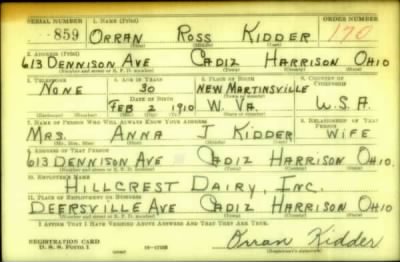 SERIAL NUMBER 1. NAME (Print) ORDER NUMBER
859 ORRAN ROSS KIDDER 170
(First) (Middle) (Last)
2. ADDRESS (Print)
613 DENNISON AVE CADIZ HARRISON OHIO
(Number and street or R. F. D. number) (Town) (County) (State)
3. TELEPHONE 4. AGE IN YEARS 5. PLACE OF BIRTH 6. COUNTRY OF CITIZENSHIP
NONE 30 NEW MARTINSVILLE
DATE OF BIRTH
FEB 2 1910 W. VA. U.S.A.
7. NAME OF PERSON WHO WILL ALWAYS KNOW YOUR ADDRESS 8. RELATIONSHIP OF THAT PERSON
MRS. ANNA J KIDDER WIFE
(Mr., Mrs., Miss) (First) (Middle) (Last)
9. ADDRESS OF THAT PERSON
613 DENNISON AVE CADIZ HARRISON OHIO.
(Number and street or R. F. D. number) (Town) (County) (State)
10. EMPLOYER'S NAME
HILLCREST DAIRY, INC.
11. PLACE OF EMPLOYMENT OR BUSINESS
DEERSVILLE AVE CADIZ HARRISON OHIO
(Number and street or R. F. D. number) (Town) (County) (State)
I AFFIRM THAT I HAVE VERIFIED ABOVE ANSWERS AND THAT THEY ARE TRUE.
REGISTRATION CARD
D. S. S. Form 1 Orran Kidder